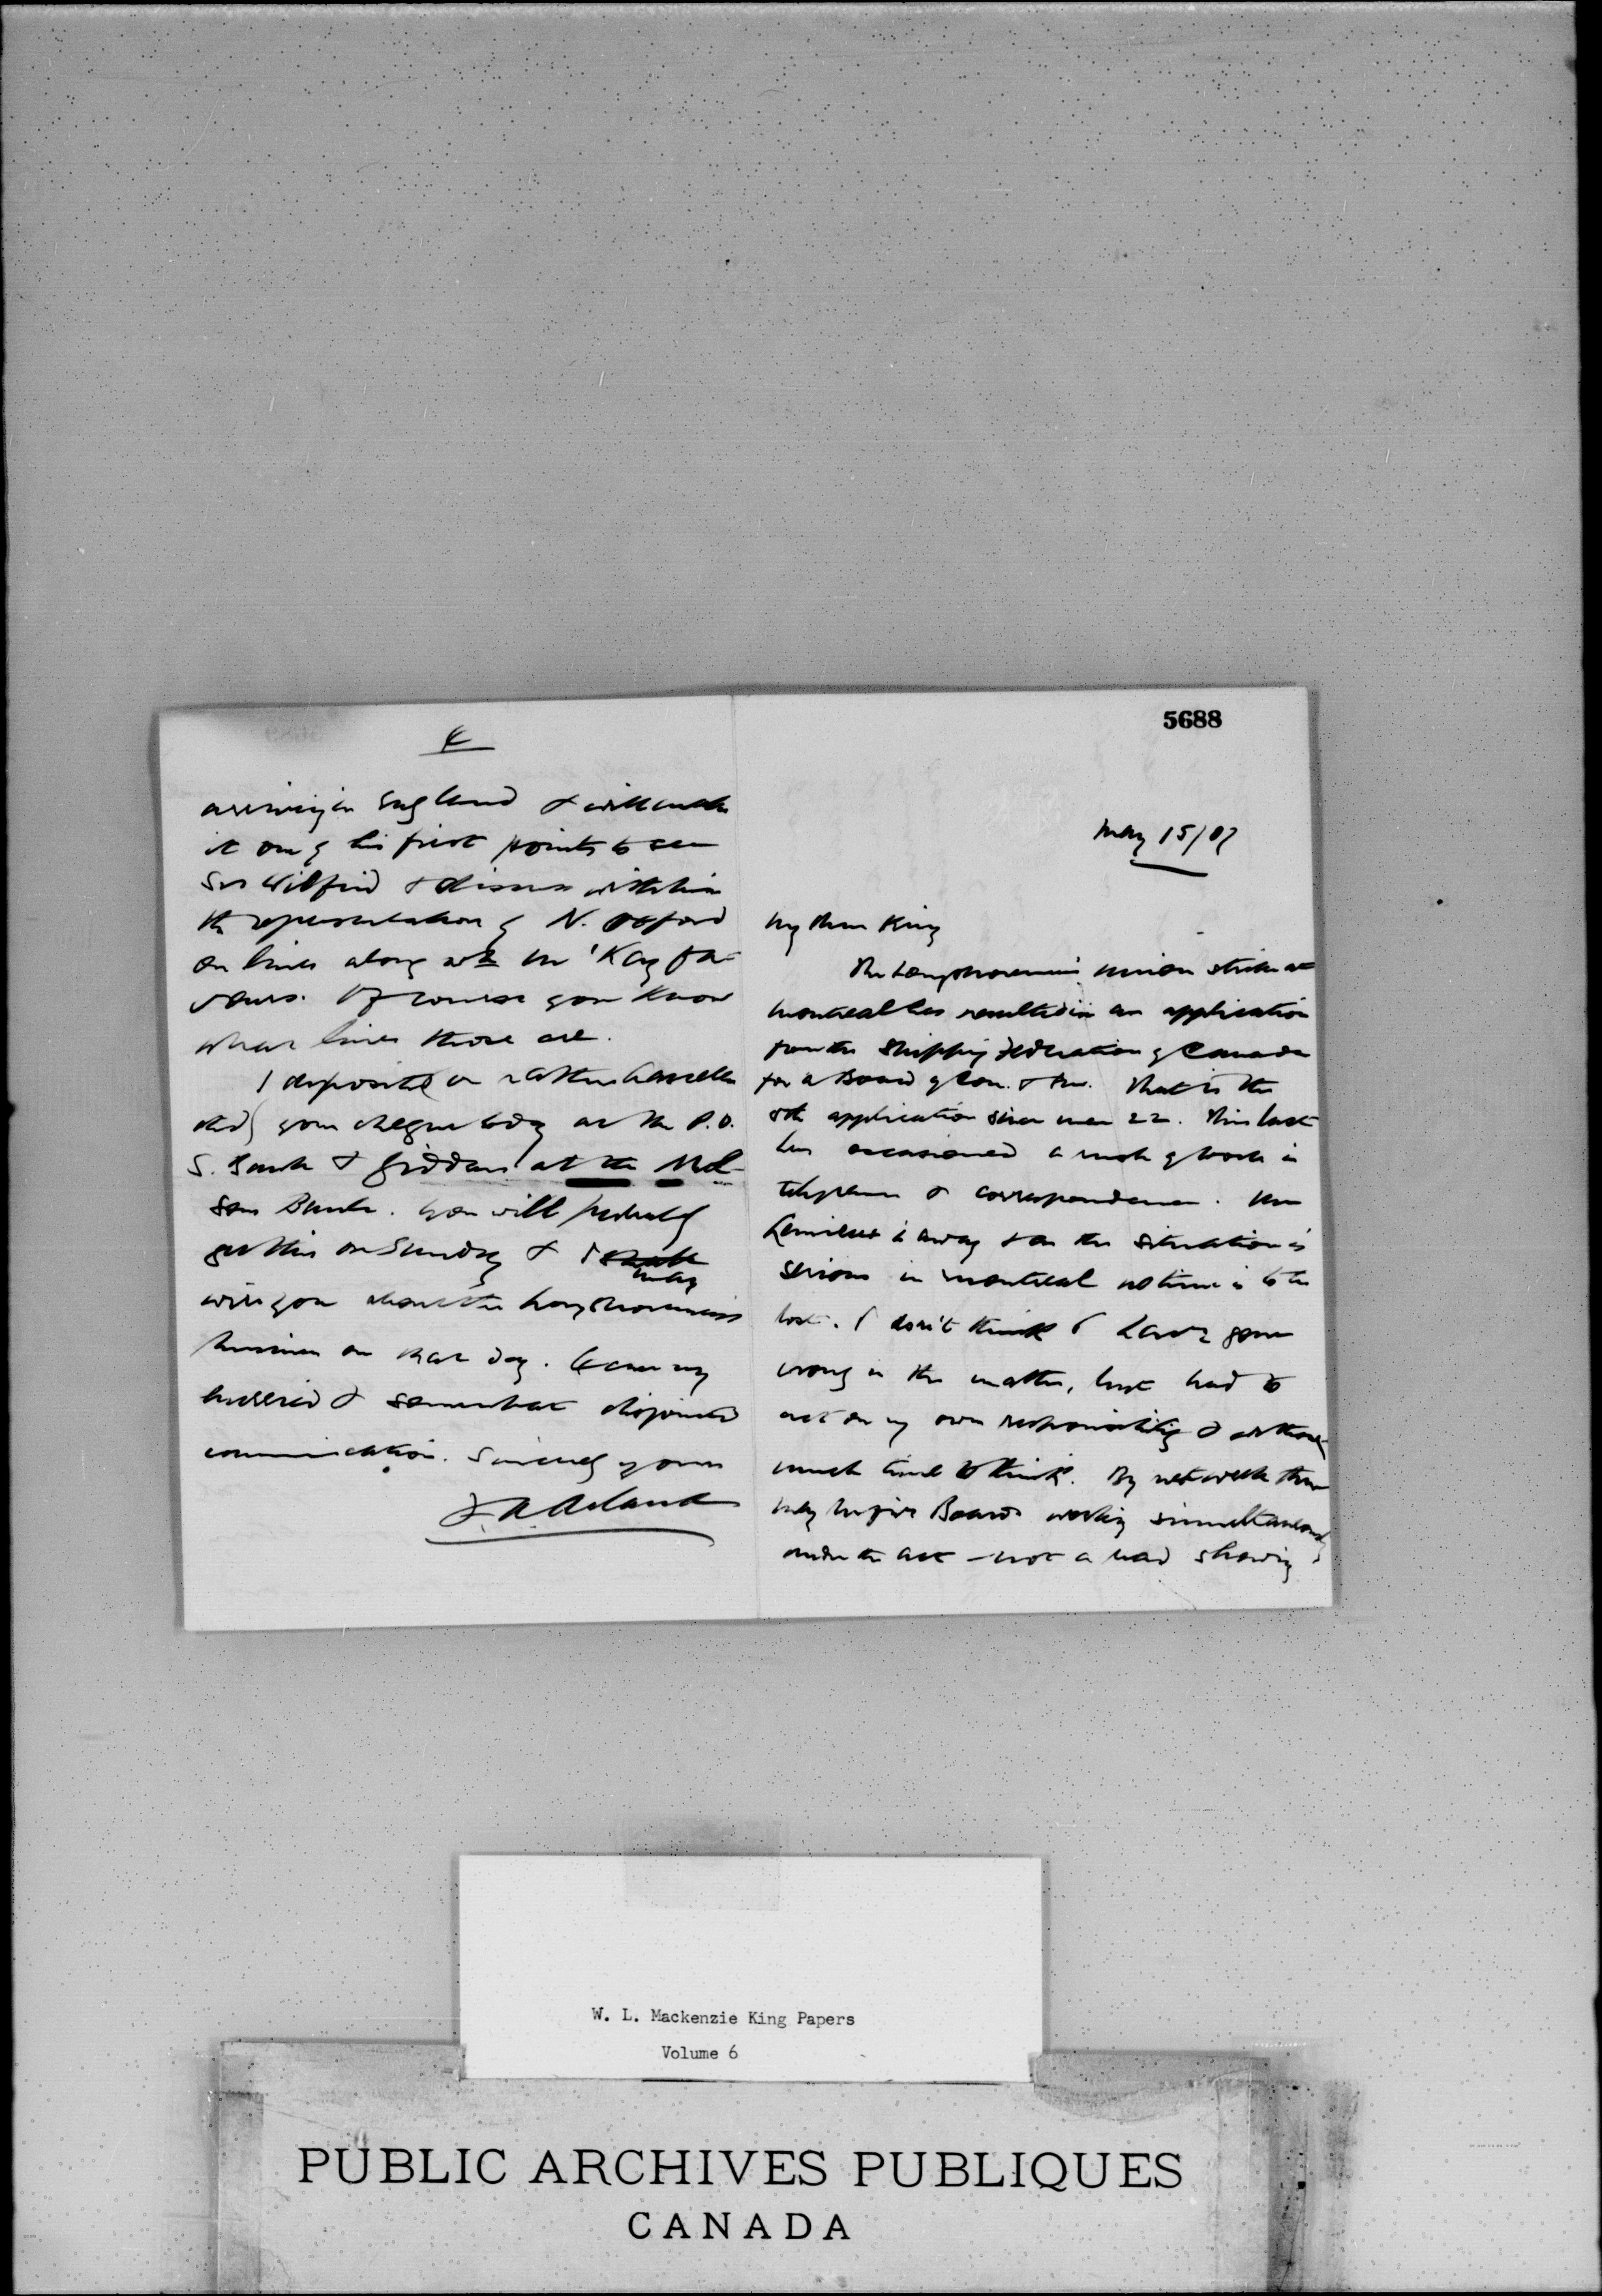 5688
May 15/07
My dear King
The Longshoremen's union strike at
Montreal has resulted in an application
from the Shipping Federation of Canada
for a Board of Con. & Inv. That is the
8th application since Mar 22. This last
has occasioned a rush of work in
telegrams & correspondence. Mr
Lemieux is away & as the situation is
serious in Montreal no time is to be
lost. I don't think I have gone
wrong in the matter, but had to
act on my own responsibility & without
much time to think. By next week there
may be five Boards working simultaneously
under the act – not a bad showing.
4
arriving in England & will make
it one of his first points to see
Sir Wilfrid & discuss with him
the representation of N. Oxford
on lines along wh Mr 'Kay fa-
vours. Of course you know
what lines those are.
I deposited (or rather
) your cheque today at the P.O.
S. Bank & Giddens at the Mol-
sons Bank. You will probably
get this on Sunday & I
may
wire you about the Longshoremen's
business on that day. Excuse my
hurried & somewhat disjointed
communication. Sincerely yours
F. A. Acland
W. L. Mackenzie King Papers
Volume 6
PUBLIC ARCHIVES PUBLIQUES
CANADA